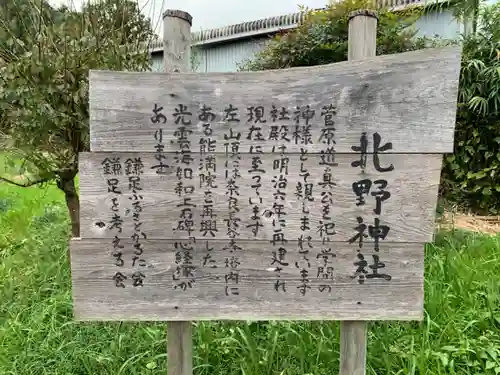 北野神社
菅原道真公を祀り学問の
神様として親しまれています
社殿は明治六年に再建され
現在に至っています
左山頂には奈良長谷寺塔内に
ある能満院を再興した
光雲海如和上石碑「心縁」が
あります
鎌足ふるさとかるた会
鎌足を考える会